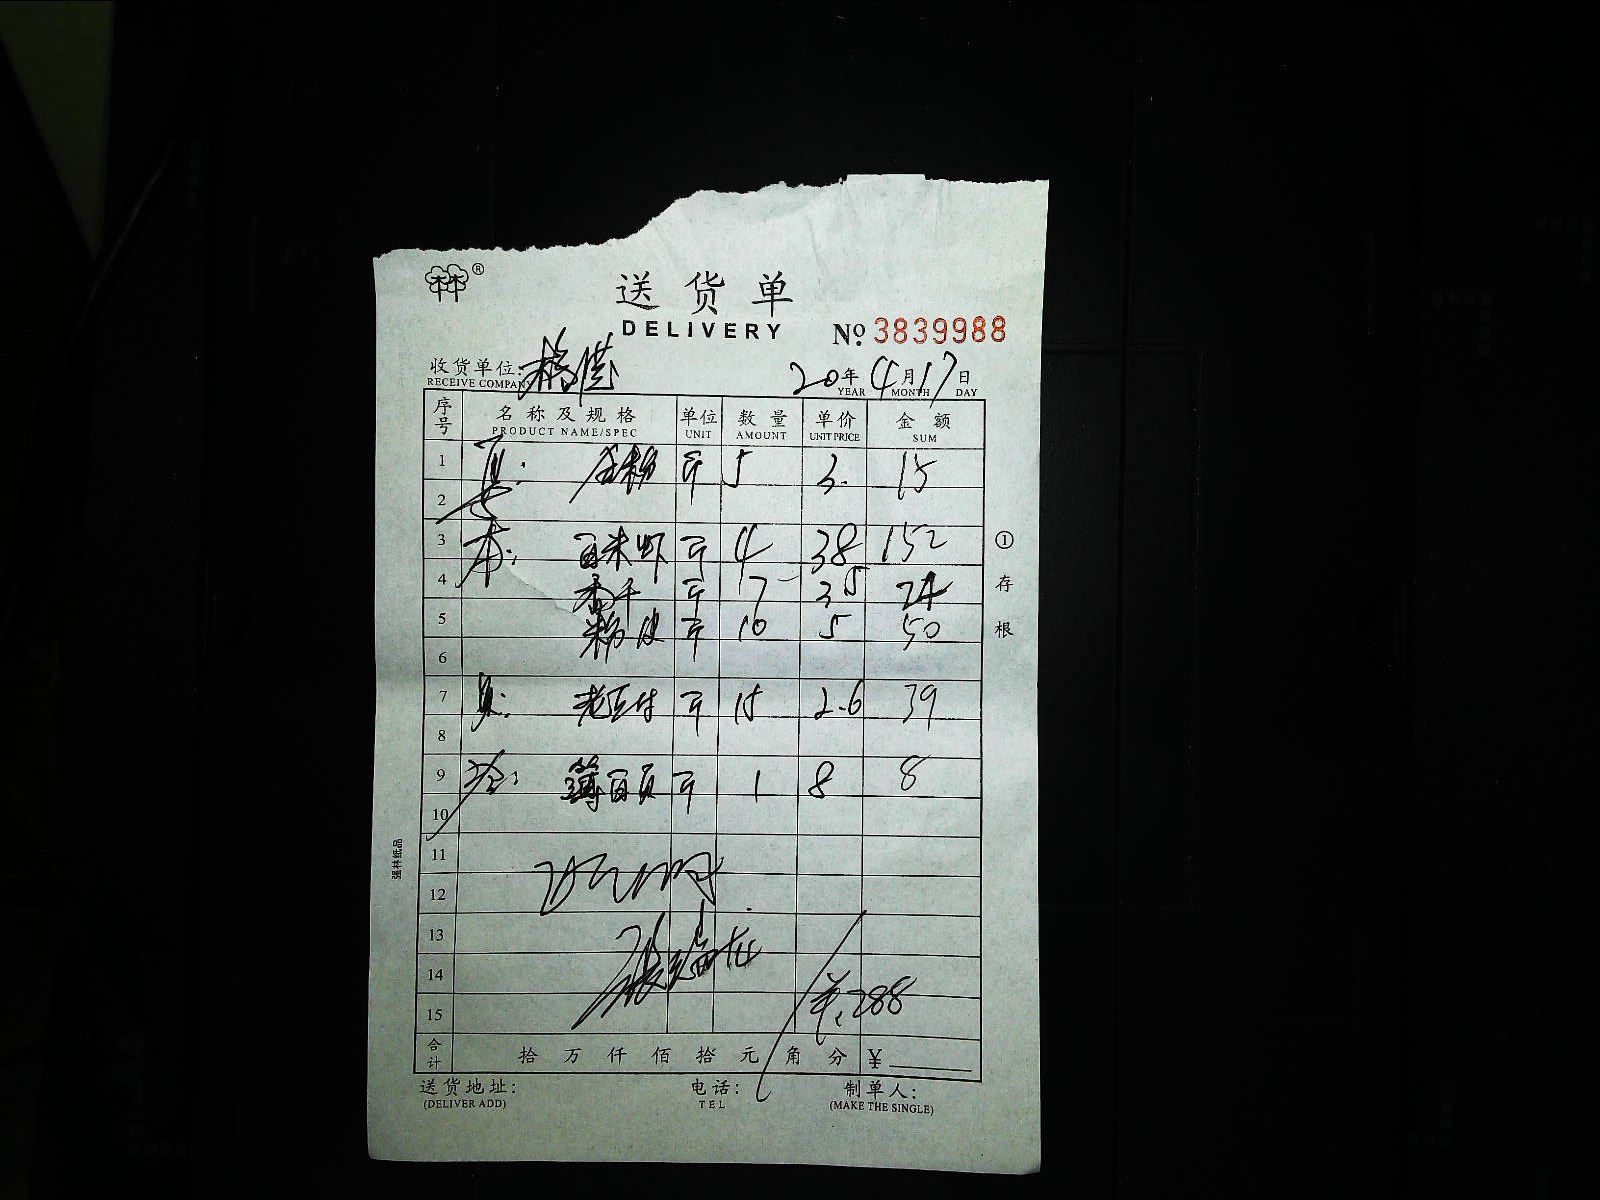 林®
送货单
DELIVERY No 3839988
收货单位: 20年4月17日
RECEIVE COMPANY YEAR MONTH DAY
序号 名称及规格 单位 数量 单价 金额
PRODUCT NAME/SPEC UNIT AMOUNT UNIT PRICE SUM
1 斤 5 3. 15
2
3 白米虾 斤 4 38 152
4 香干 斤 7 35 24
5 粉皮 斤 10 5 50
6
7 老豆付 斤 15 2.6 39
8
9 薄百页 斤 1 8 8
10
11
12
13
14
15 288
合计 拾万仟佰拾元角分 ¥
送货地址: 电话: 制单人:
(DELIVER ADD) TEL (MAKE THE SINGLE)
①存根
强林纸品